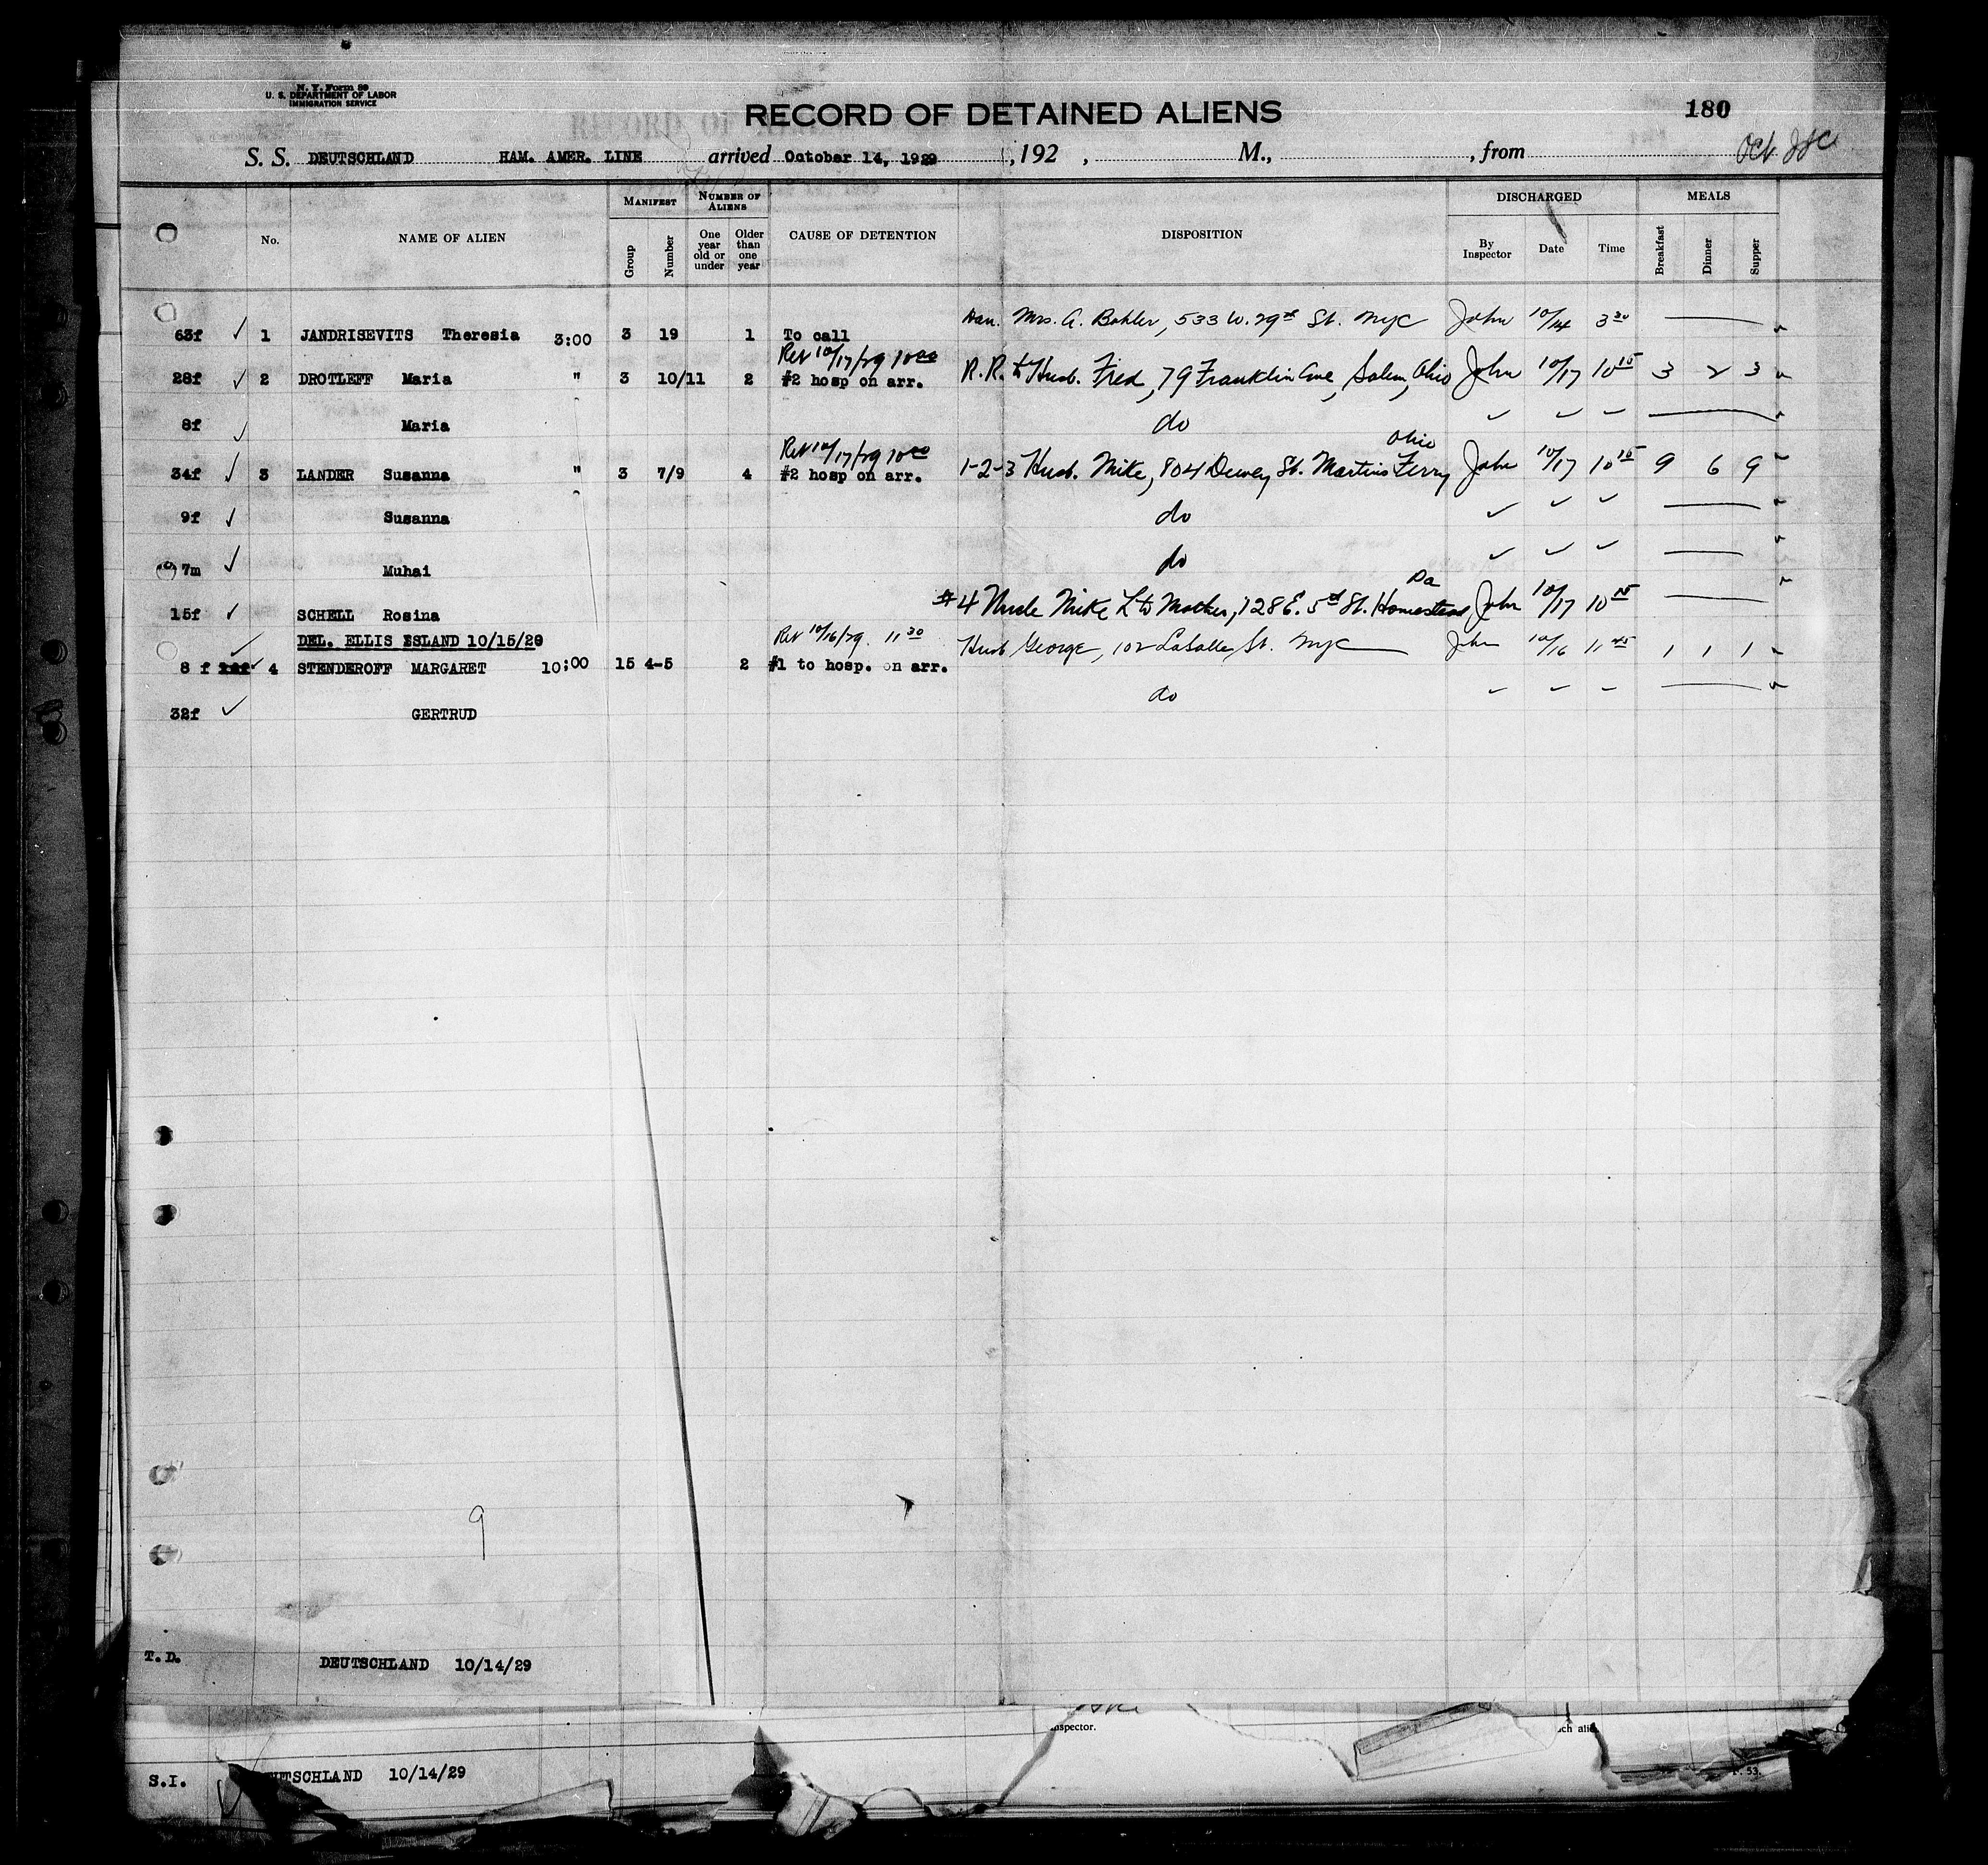 N. Y. Form 89
U. S. DEPARTMENT OF LABOR
IMMIGRATION SERVICE
RECORD OF DETAINED ALIENS
180
S. S. DEUTSCHLAND HAM. AMER. LINE arrived October 14, 1929 , 192 , M., , from
Oct
MANIFEST NUMBER OF ALIENS DISCHARGED MEALS
No. NAME OF ALIEN Group Number One year old or under Older than one year CAUSE OF DETENTION DISPOSITION By Inspector Date Time Breakfast Dinner Supper
63f ✓ 1 JANDRISEVITS Theresia 3:00 3 19 1 To call Dau. Mrs. A. Bohler, 533 W. 29th St. NYC John 10/14 3 30
Rel 10/17/29 10 00
28f ✓ 2 DROTLEFF Maria " 3 10/11 2 #2 hosp on arr. R.R. to Husb. Fred, 79 Franklin Ave, Salem, Ohio John 10/17 10 15 3 2 3
8f ✓ Maria " do ✓ ✓ ✓
Rel 10/17/29 10 00 Ohio
34f ✓ 3 LANDER Susanna " 3 7/9 4 #2 hosp on arr. 1-2-3 Husb. Mike, 804 Dewey St. Martins Ferry John 10/17 10 15 9 6 9
9f ✓ Susanna " do ✓ ✓ ✓
7m ✓ Muhai do ✓ ✓ ✓
Pa
15f ✓ SCHELL Rosina #4 Uncle Mike L to Mother, 128 E. 5th St. Homestead John 10/17 10 15
DEL. ELLIS ISLAND 10/15/29 Rel 10/16/29. 11 30
8 f ✓ 4 STENDEROFF MARGARET 10:00 15 4-5 2 #1 to hosp. on arr. Husb George, 102 LaSalle St. NYC John 10/16 11 45 1 1 1
32f ✓ GERTRUD do
9
T.D. DEUTSCHLAND 10/14/29
nspector. ch alie
S.I. UTSCHLAND 10/14/29
53.